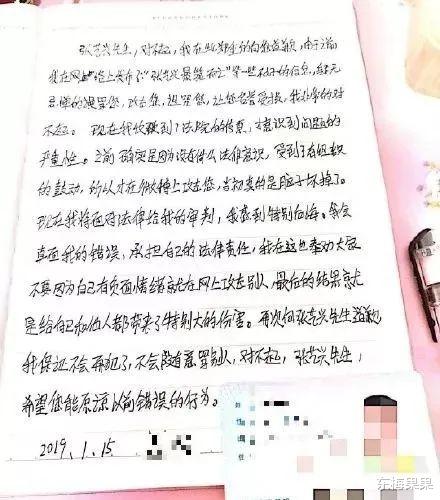 张艺兴先生，对不起，我在此郑重的向您道歉，由于之前
我在网上发布了“张艺兴 ”等一些不好的信息，
的诬蔑您，攻击您，诅咒您，让您名誉受损，我非常的对
不起。现在我收到了法院的传票，才意识到问题的
严重性。之前确实是因为没有什么法律意识，受到了有组织
的鼓动，所以才在微博上攻击您，当初真的是脑子坏掉了。
现在我将面对法律给我的审判，我感到特别后悔。我会
直面我的错误，承担自己的法律责任，我在这也奉劝大家
不要因为自己有负面情绪就在网上攻击别人，最后的结果就
是给自己和他人都带来了特别大的伤害。再次向张艺兴先生道歉
我保证不会再犯了，不会随意辱骂别人，对不起，张艺兴先生，
希望您能原谅以前错误的行为。
2019.1.15
东海果果